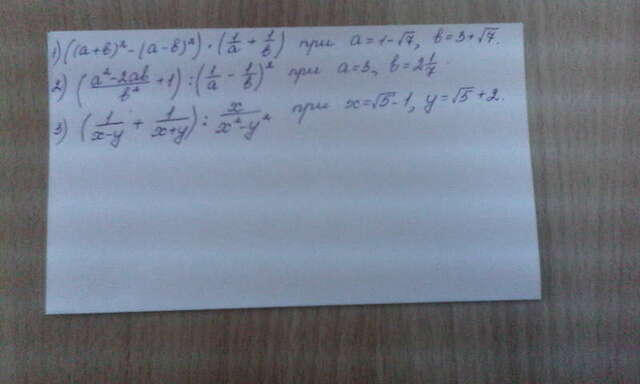 1) ((a+b)² - (a-b)²) · (1/a + 1/b) при a=1-√7, b=3+√7.
2) ((a²-2ab)/b² + 1) : (1/a - 1/b)² при a=3, b=2 1/7.
3) (1/(x-y) + 1/(x+y)) : x/(x²-y²) при x=√5-1, y=√5+2.